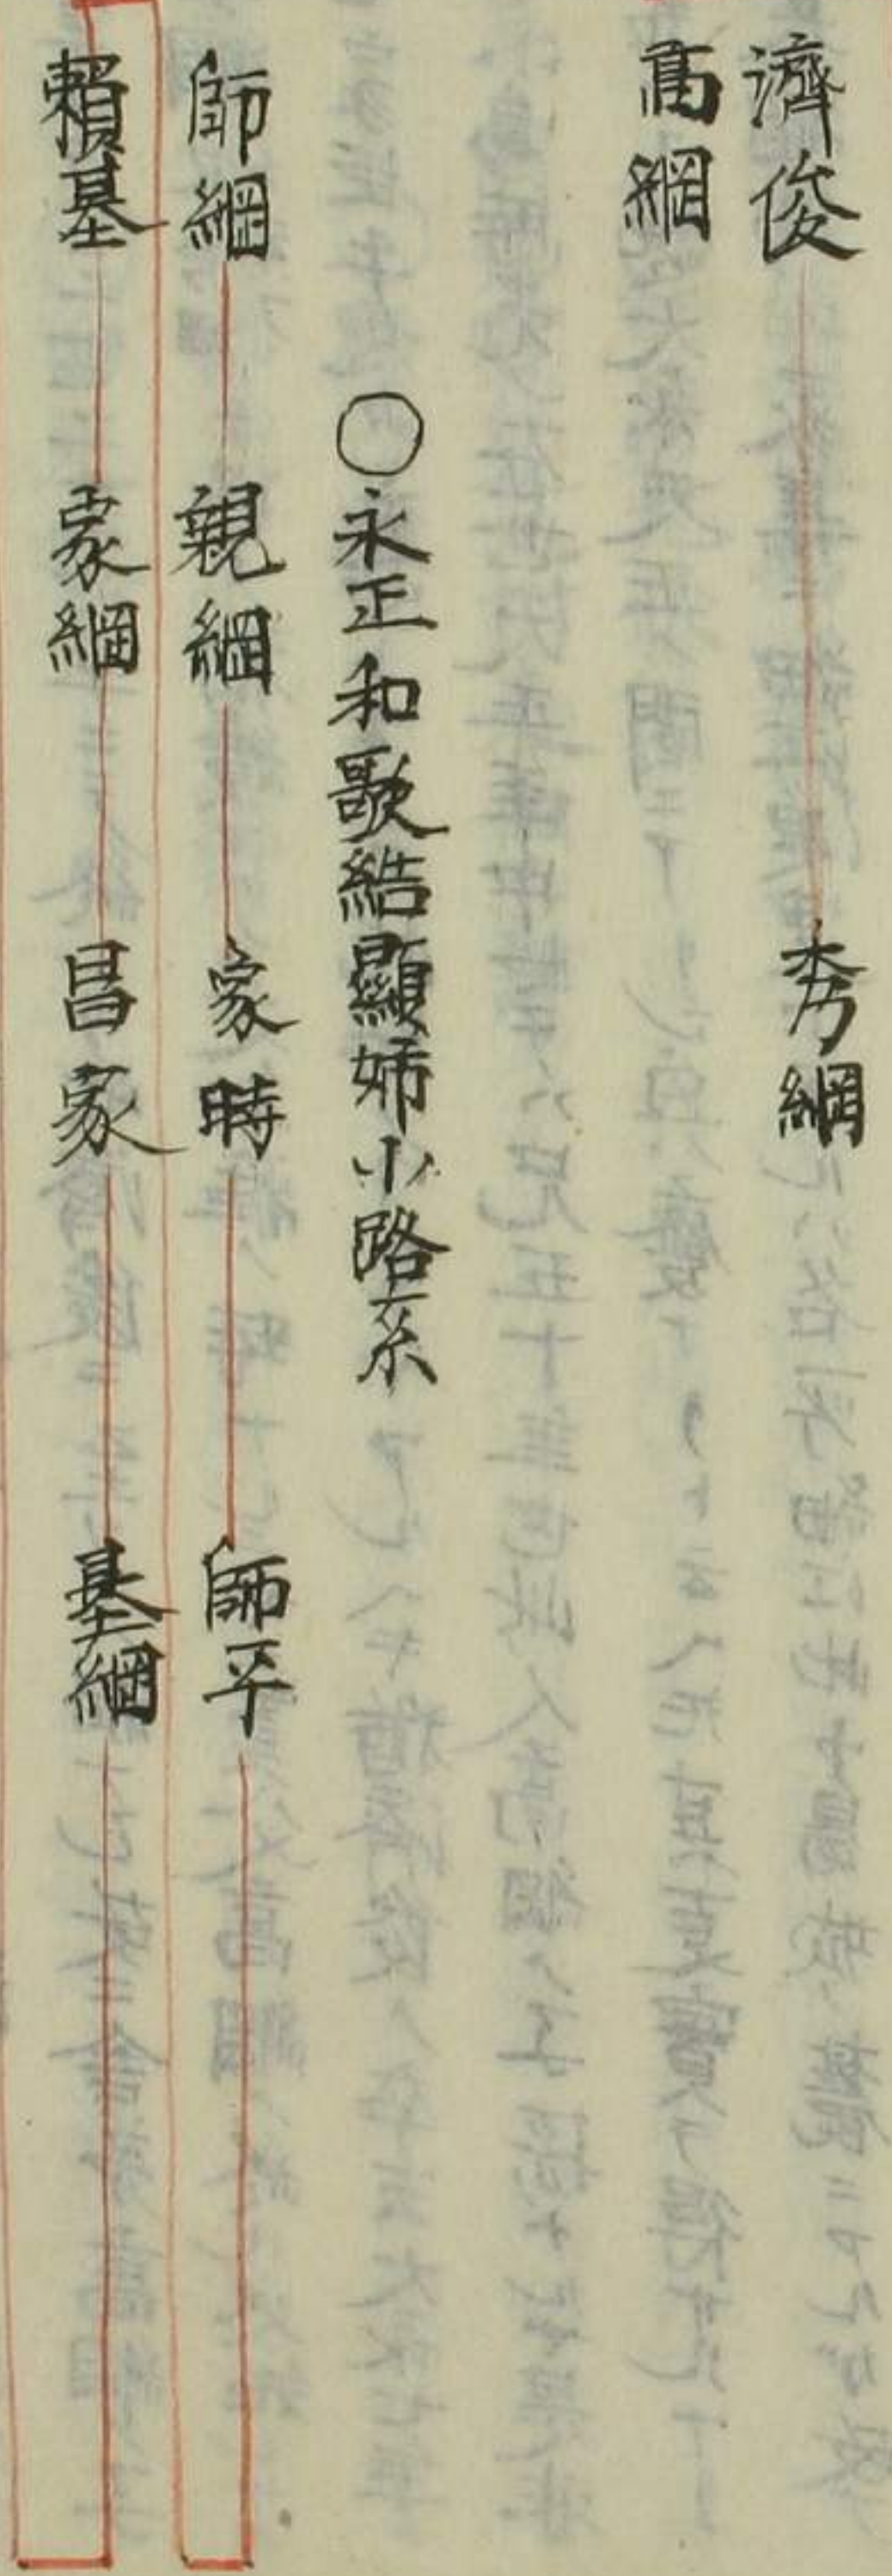 濟俊 秀綱
高綱
○永正和歌結顯姉小路系
師綱 親綱 家時 師平
賴基 家綱 昌家 基綱